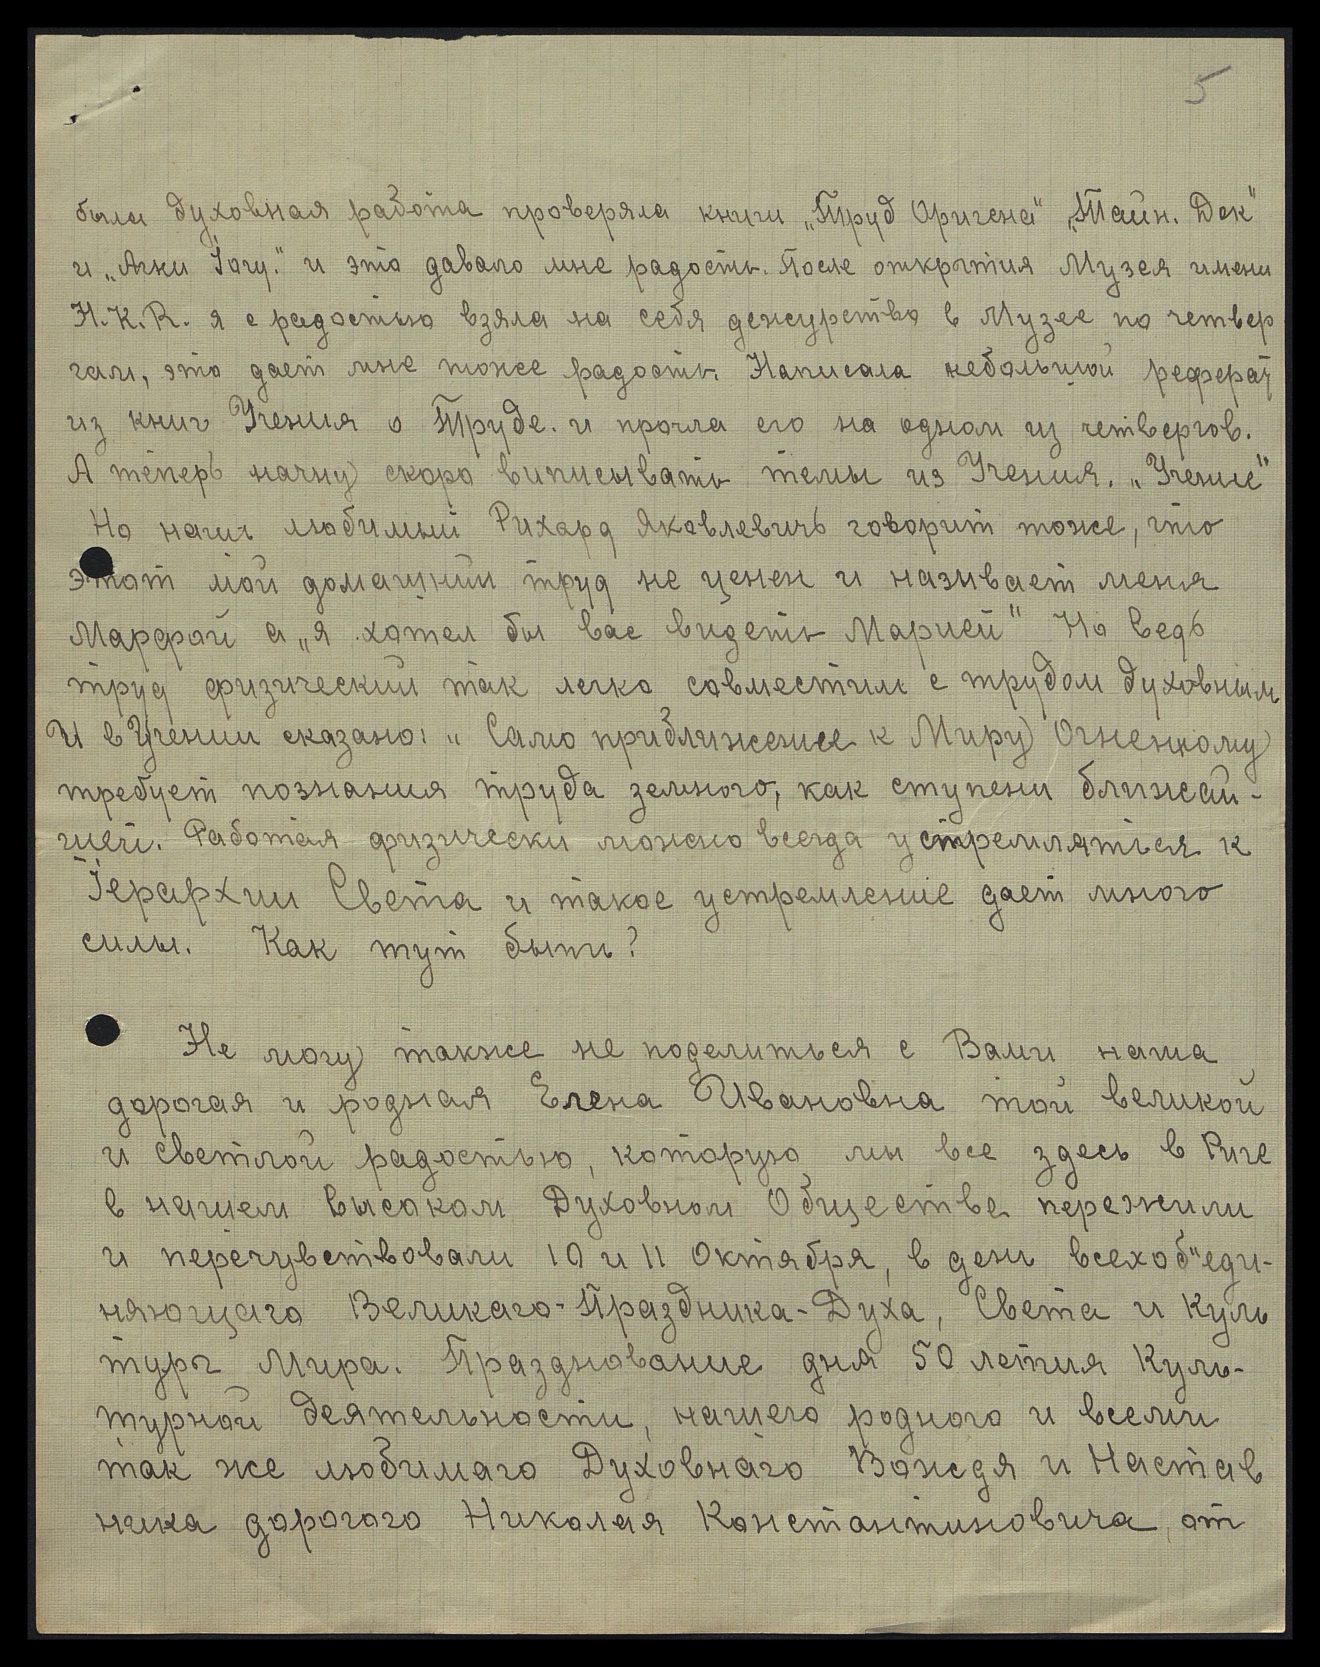 5
была духовная работа проверяла книги „Труд Оригена" „Тайн. Док"
и „Агни Iогу." и это давало мне радость. После открытия Музея имени
Н.К.R. я с радостью взяла на себя дежурство в Музее по четвер
гам, это дает мне тоже радость. Написала небольшой реферат
из книг Учения о Труде. и прочла его на одном из четвергов.
А теперь начну скоро виписывать темы из Учения. „Учение"
Но наш любимый Рихард Яковлевичь говорит тоже, что
этот мой домашний труд не ценен и називает меня
Марфой а „я хотел бы вас видеть Марией" Но ведь
труд физический так легко совместим с трудом духовным
И в Учении сказано: „ Само приближение к Миру Огненному
требует познания труда земного, как ступени ближай-
шей. Работая физически можно всегда устремляться к
Iерархии Света и такое устремление дает много
силы. Как тут быть?
Не могу также не поделиться с Вами наша
дорогая и родная Елена Ивановна той великой
и светлой радостью, которую мы все здесь в Риге
в нашем высоком Духовном Обществе пережили
и перечувствовали 10 и 11 Октября, в день всехоб"еди-
няющаго Великаго-Праздника-Духа, Света и Куль
туры Мира. Празднование дня 50 летия Куль-
турной деятельности, нашего родного и всеми
так же любимаго Духовнаго Вождя и Настав
ника дорогого Николая Константиновича, от